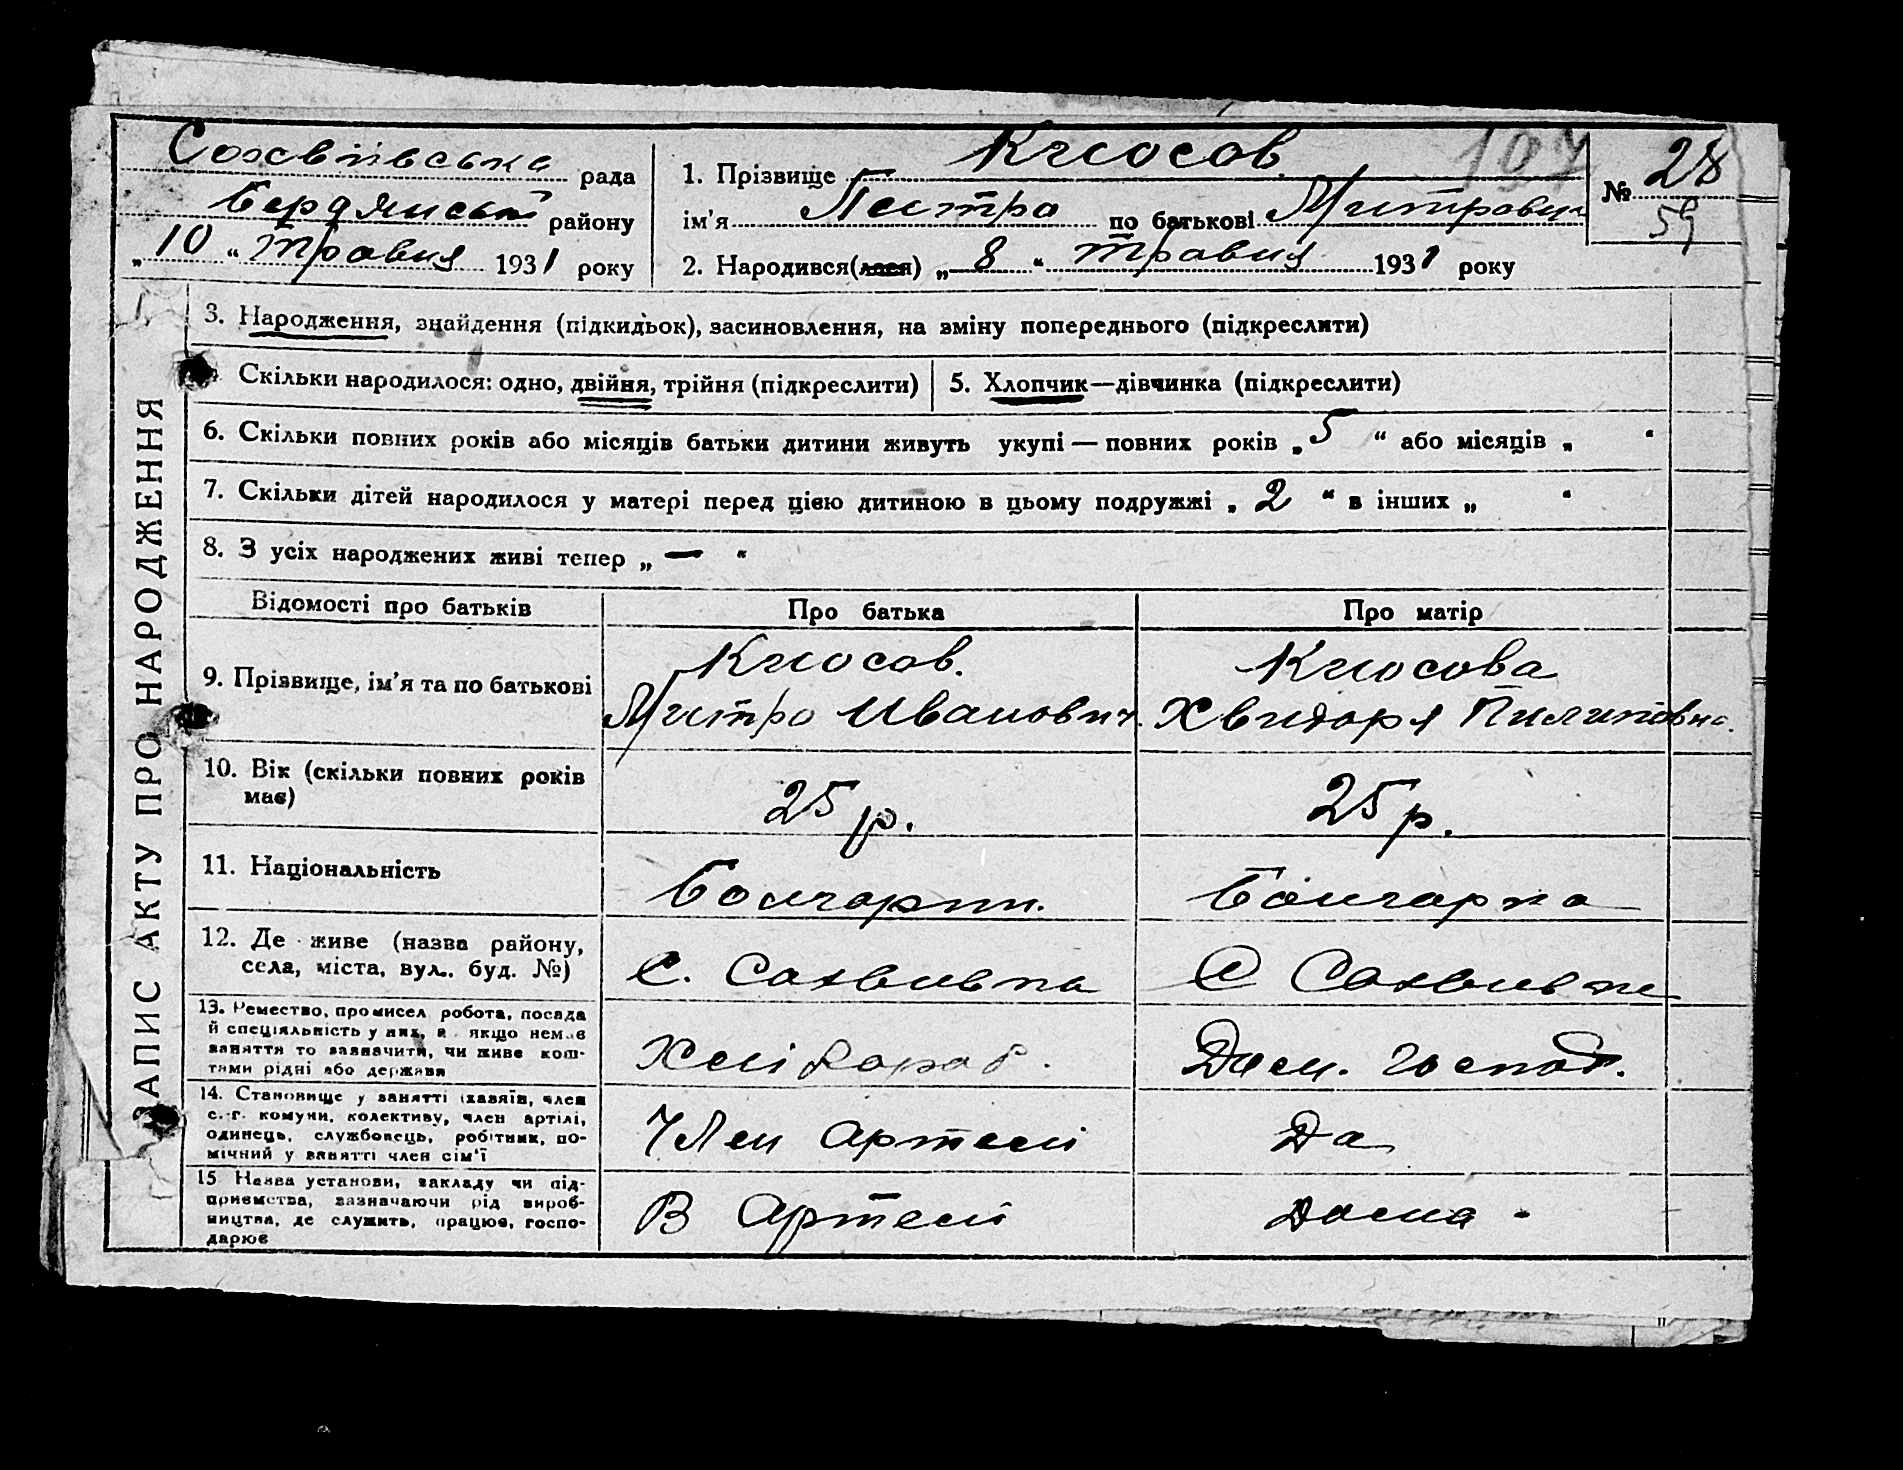 Софіївська рада
Бердянськ району
„ 10 “ Травня 1931 року
1. Прізвище Кюсов 107
ім’я Петро по батькові Митрович
2. Народився(лася) „ 8 “ Травня 1931 року
№ 28
59
ЗАПИС АКТУ ПРО НАРОДЖЕННЯ
3. Народження, знайдення (підкидьок), засиновлення, на зміну попереднього (підкреслити)
Скільки народилося: одно, двійня, трійня (підкреслити)
5. Хлопчик—дівчинка (підкреслити)
6. Скільки повних років або місяців батьки дитини живуть укупі — повних років „ 5 “ або місяців „ “
7. Скільки дітей народилося у матері перед цією дитиною в цьому подружжі „ 2 “ в інших „ “
8. З усіх народжених живі тепер „ — “
Відомості про батьків Про батька Про матір
9. Прізвище, ім’я та по батькові
Кюсов.
Митро Иванович.
Кюсова
Хвидоря Пилиповна.
10. Вік (скільки повних років
має)
25 р.
25 р.
11. Національність
Болгарин.
Болгарка
12. Де живе (назва району,
села, міста, вул., буд. №)
С. Софиевка
С Софиевке
13. Ремество, промисел робота, посада
й спеціяльність у них, а якщо немає
заняття то зазначити, чи живе кош-
тами рідні або держави
Хлібороб.
Дом. господ.
14. Становище у занятті (хазяїн, член
с.-г. комуни, колективу, член артілі,
одинець, службовець, робітник, по-
мічний у занятті член сім’ї
Член Артелі
Да
15 Назва установи, закладу чи під-
приємства, зазначаючи рід вироб-
ництва, де служить, працює, госпо-
дарює
В Артелі
Дома -